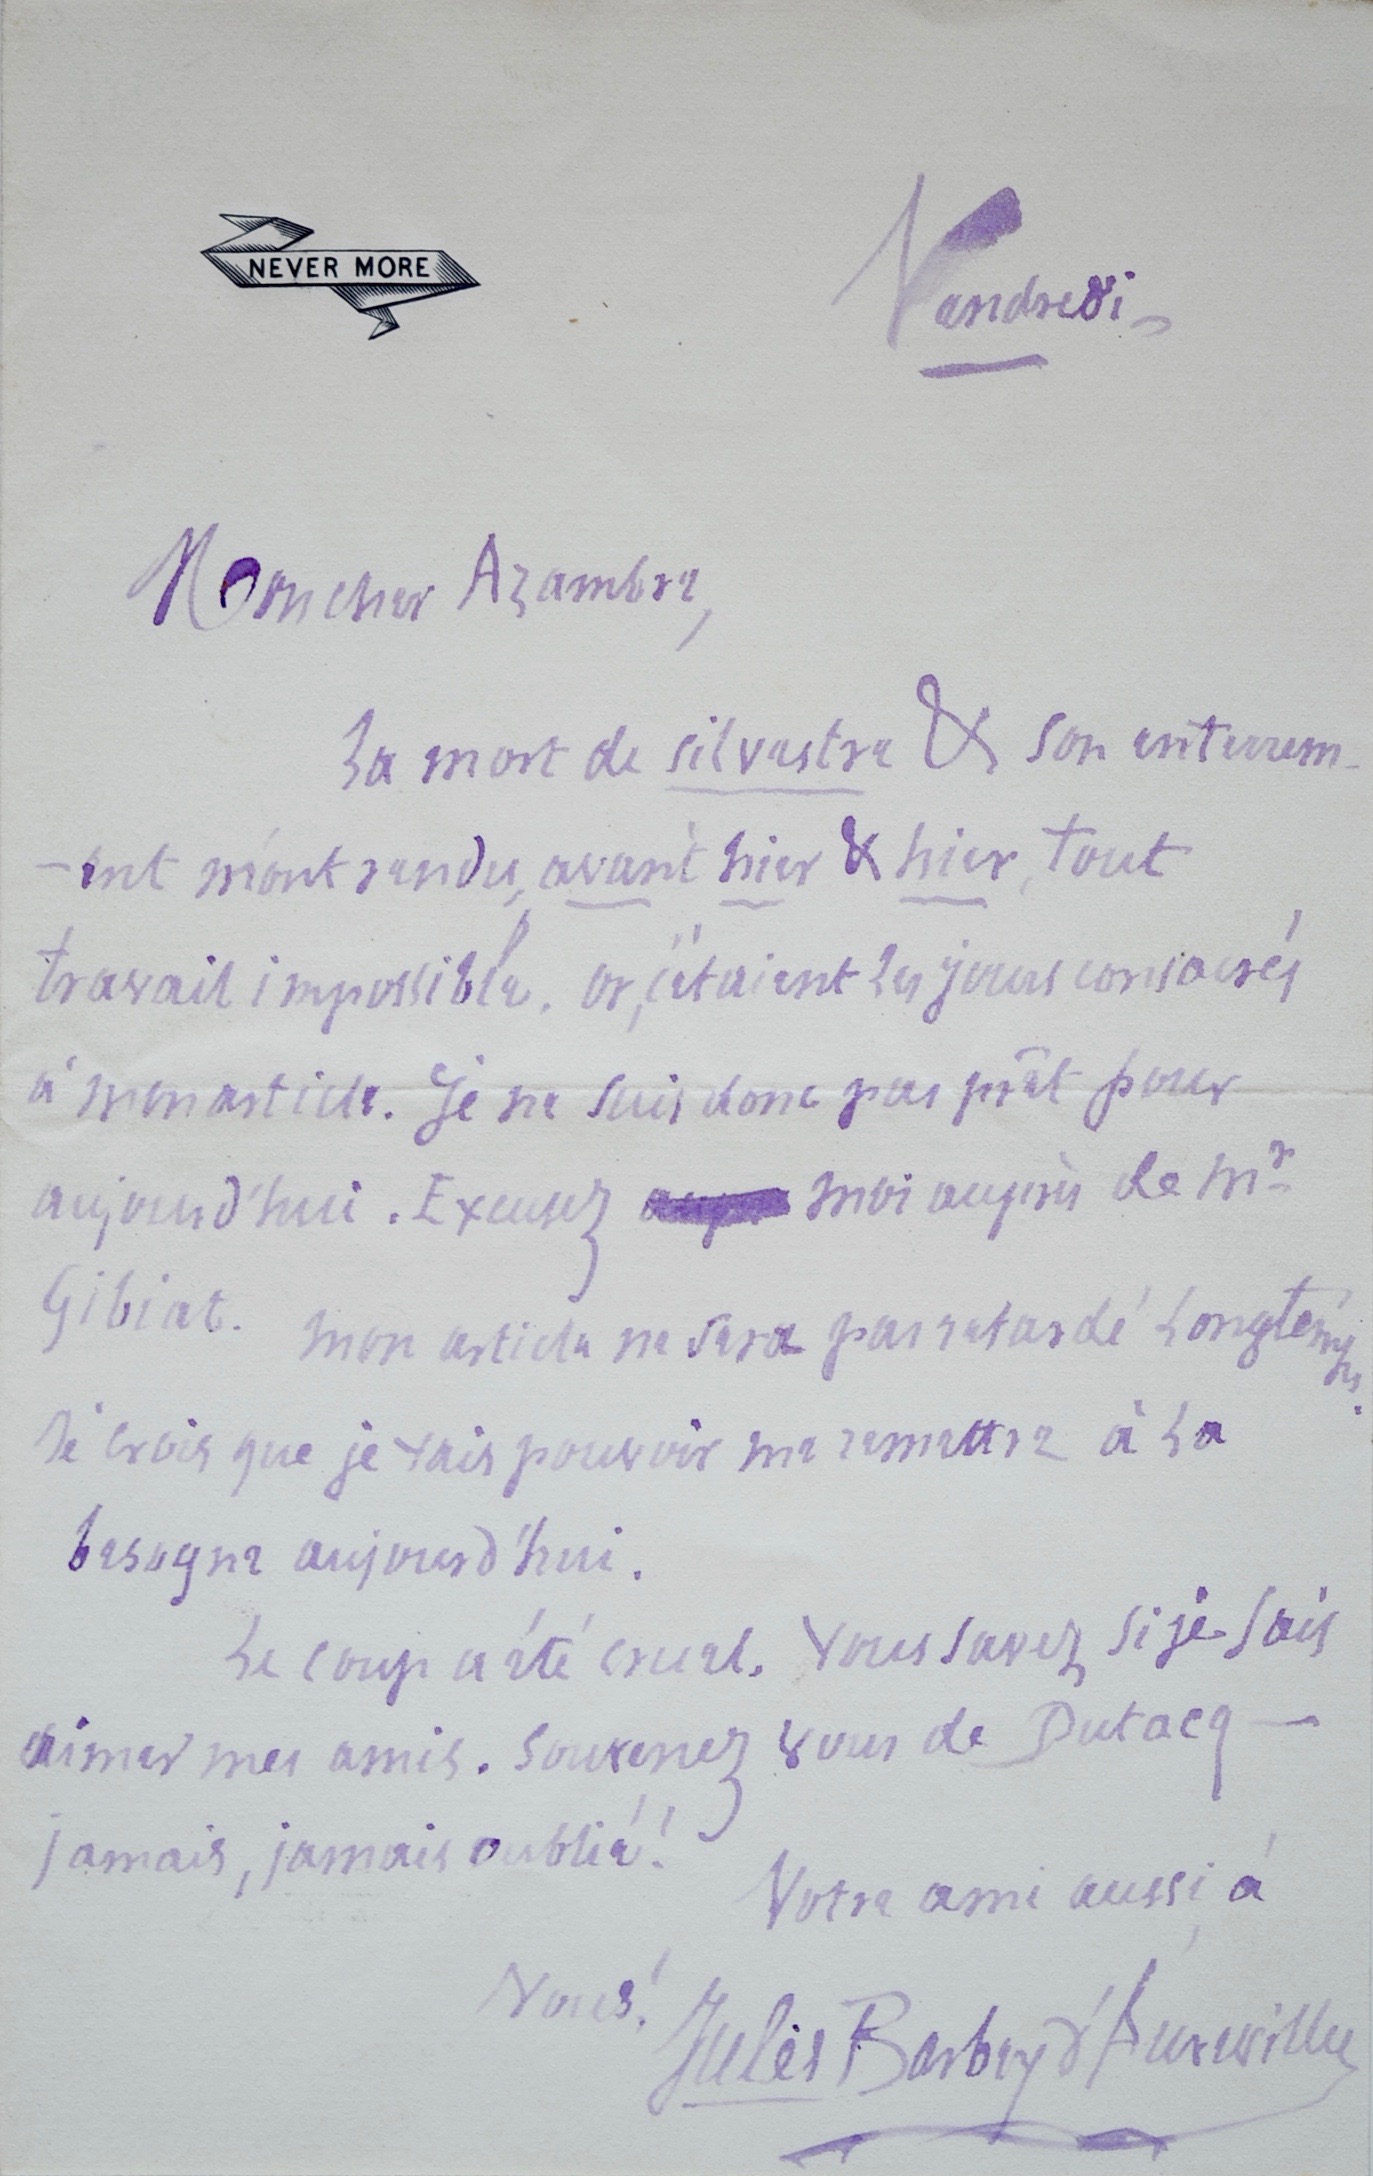 NEVER MORE
Vendredi –
Mon cher Azambre,
La mort de silvestre & son enterrem-
-ent m'ont rendu, avant hier & hier, tout
travail impossible. Or, c'étaient les jours consacrés
à mon article. Je ne suis donc pas prêt pour
aujourd'hui. Excusez moi auprès de Mr
Gibiat. Mon article ne sera pas retardé longtemps.
Je crois que je vais pouvoir me remettre à la
besogne aujourd'hui.
Le coup a été cruel. Vous savez si je sais
aimer mes amis. Souvenez vous de Dutacq —
jamais, jamais oublié!
Votre ami aussi à
Vous!
Jules Barbey d'Aurevilly